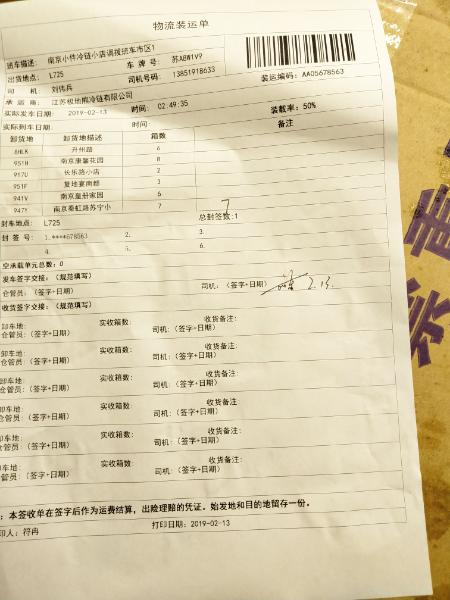 物流装运单
班车描述: 南京小件冷链小店调拨班车市区1
车 牌 号: 苏A8W1V9
出货地点: L725
司机号码: 13851918633
装运编码: AA05678563
司 机: 刘伟兵
承 运 商: 江苏极地熊冷链有限公司
实际发车日期: 2019-02-13 时间: 02:49:35 装载率: 50%
实际到车日期: 时间: 备注
卸货地 卸货地描述 箱数
8HLK 升州路 6
951H 南京康馨花园 8
917U 长乐路小店 2
951F 复地宴南都 3
941V 南京皇册家园 6
947Y 南京秦虹路苏宁小 7
7
封车地点: L725 总封签数:1
封 签 号: 1.****678563 2. 3.
4. 5. 6.
空承载单元总数: 0
发车签字交接: (规范填写)
仓管员: (签字+日期) 司机: (签字+日期) 2.13.
收货签字交接: (规范填写)
卸车地: 实收箱数: 收货备注:
仓管员: (签字+日期) 司机: (签字+日期)
卸车地: 实收箱数: 收货备注:
仓管员: (签字+日期) 司机: (签字+日期)
卸车地: 实收箱数: 收货备注:
仓管员: (签字+日期) 司机: (签字+日期)
卸车地: 实收箱数: 收货备注:
仓管员: (签字+日期) 司机: (签字+日期)
卸车地: 实收箱数: 收货备注:
仓管员: (签字+日期) 司机: (签字+日期)
: 本签收单在签字后作为运费结算, 出险理赔的凭证。始发地和目的地留存一份。
印人: 符冉 打印日期: 2019-02-13